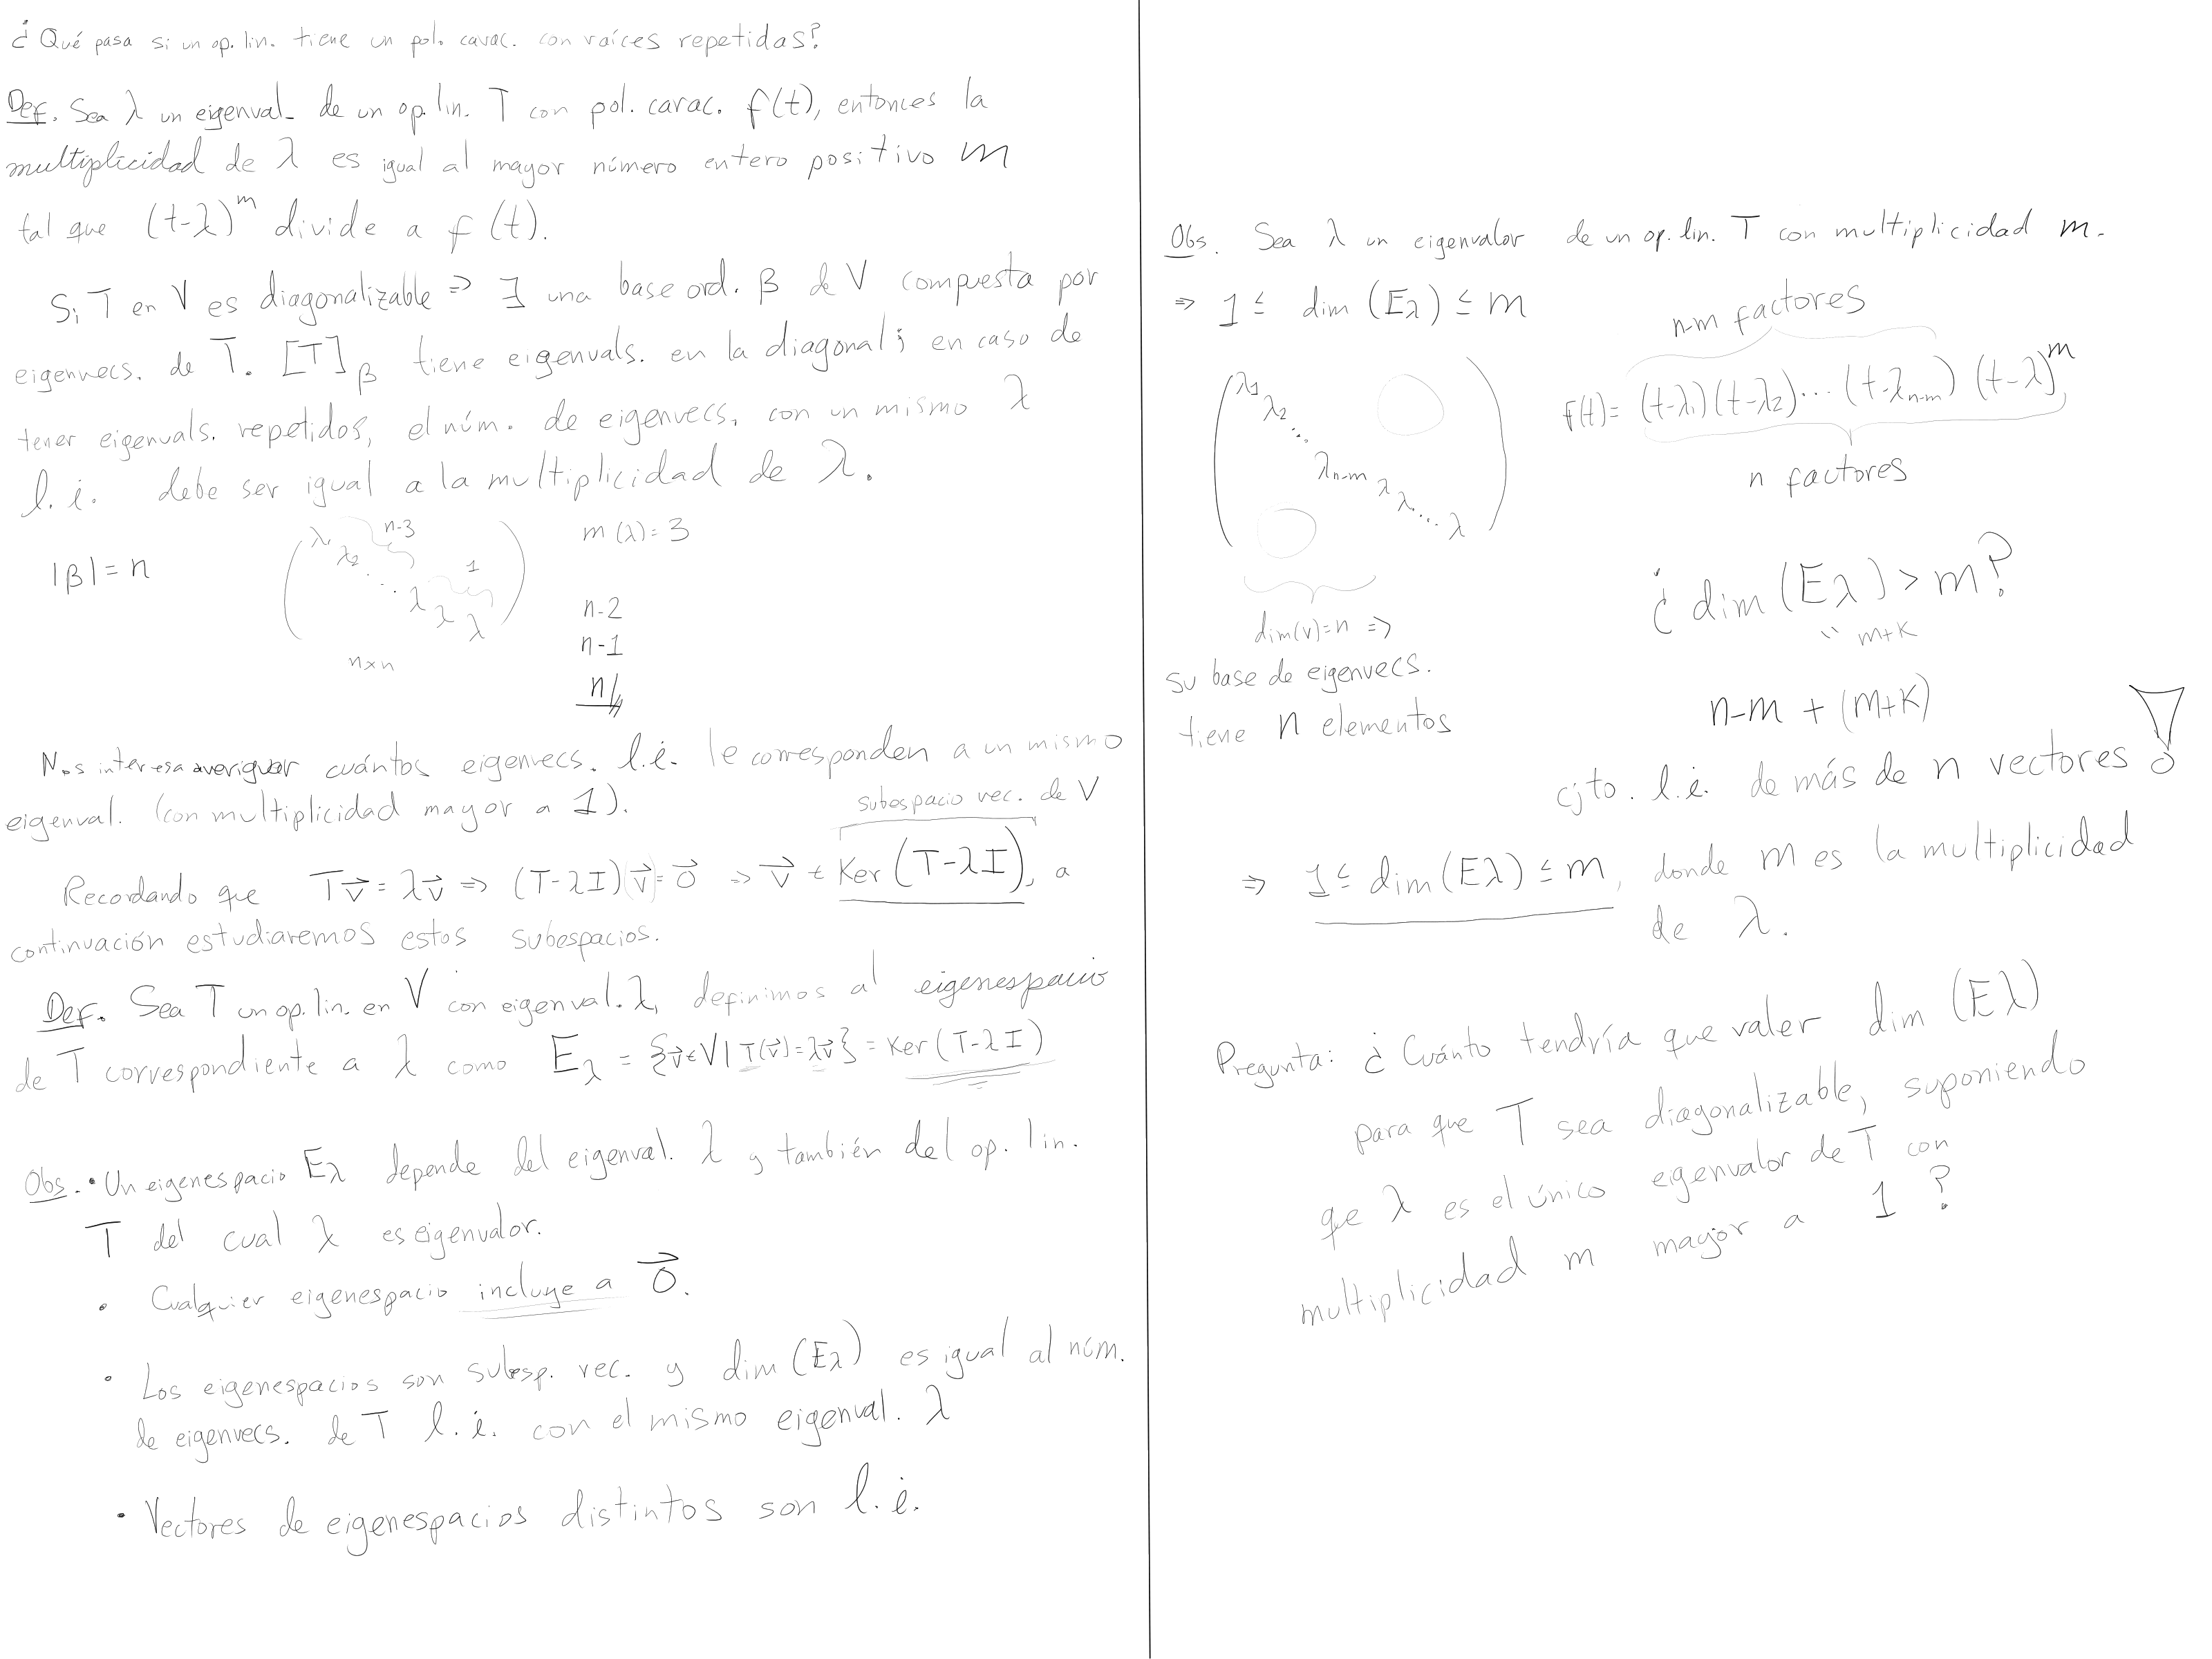 ¿Qué pasa si un op. lin. tiene un pol. carac. con raíces repetidas?
Def. Sea λ un eigenval. de un op. lin. T con pol. carac. f(t), entonces la
multiplicidad de λ es igual al mayor número entero positivo m
tal que (t-λ)^m divide a f(t).
Si T en V es diagonalizable ⇒ ∃ una base ord. β de V compuesta por
eigenvecs. de T. [T]_β tiene eigenvals. en la diagonal; en caso de
tener eigenvals. repetidos, el núm. de eigenvecs. con un mismo λ
l.i. debe ser igual a la multiplicidad de λ.
|β|=n
λ₁ λ₂ ... λ λ λ
n-3
1
n×n
m(λ)=3
n-2
n-1
n
Nos interesa averiguar cuántos eigenvecs. l.i. le corresponden a un mismo
eigenval. (con multiplicidad mayor a 1).
subespacio vec. de V
Recordando que Tv⃗=λv⃗ ⇒ (T-λI)(v⃗)=0⃗ ⇒ v⃗ ∈ Ker(T-λI), a
continuación estudiaremos estos subespacios.
Def. Sea T un op. lin. en V con eigenval. λ, definimos al eigenespacio
de T correspondiente a λ como E_λ = {v⃗∈V | T(v⃗)=λv⃗} = Ker(T-λI)
Obs. • Un eigenespacio E_λ depende del eigenval. λ y también del op. lin.
T del cual λ es eigenvalor.
• Cualquier eigenespacio incluye a 0⃗.
• Los eigenespacios son subesp. vec. y dim(E_λ) es igual al núm.
de eigenvecs. de T l.i. con el mismo eigenval. λ
• Vectores de eigenespacios distintos son l.i.
Obs. Sea λ un eigenvalor de un op. lin. T con multiplicidad m.
⇒ 1 ≤ dim(E_λ) ≤ m
n-m factores
λ₁ λ₂ ... λ_{n-m} λ λ ... λ
f(t)= (t-λ₁)(t-λ₂)...(t-λ_{n-m})(t-λ)^m
n factores
dim(V)=n ⇒
su base de eigenvecs.
tiene n elementos
¿dim(E_λ) > m?
" m+k
n-m + (m+k)
cjto. l.i. de más de n vectores !
⇒ 1 ≤ dim(E_λ) ≤ m, donde m es la multiplicidad
de λ.
Pregunta: ¿Cuánto tendría que valer dim(E_λ)
para que T sea diagonalizable, suponiendo
que λ es el único eigenvalor de T con
multiplicidad m mayor a 1?